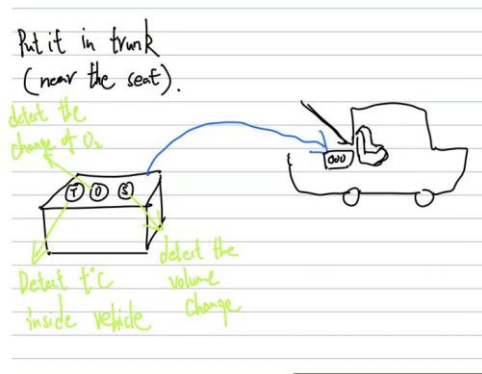 Put it in trunk
(near the seat).
detect the
change of O₂
T O S
000
Detect t°C
inside vehicle
detect the
volume
change